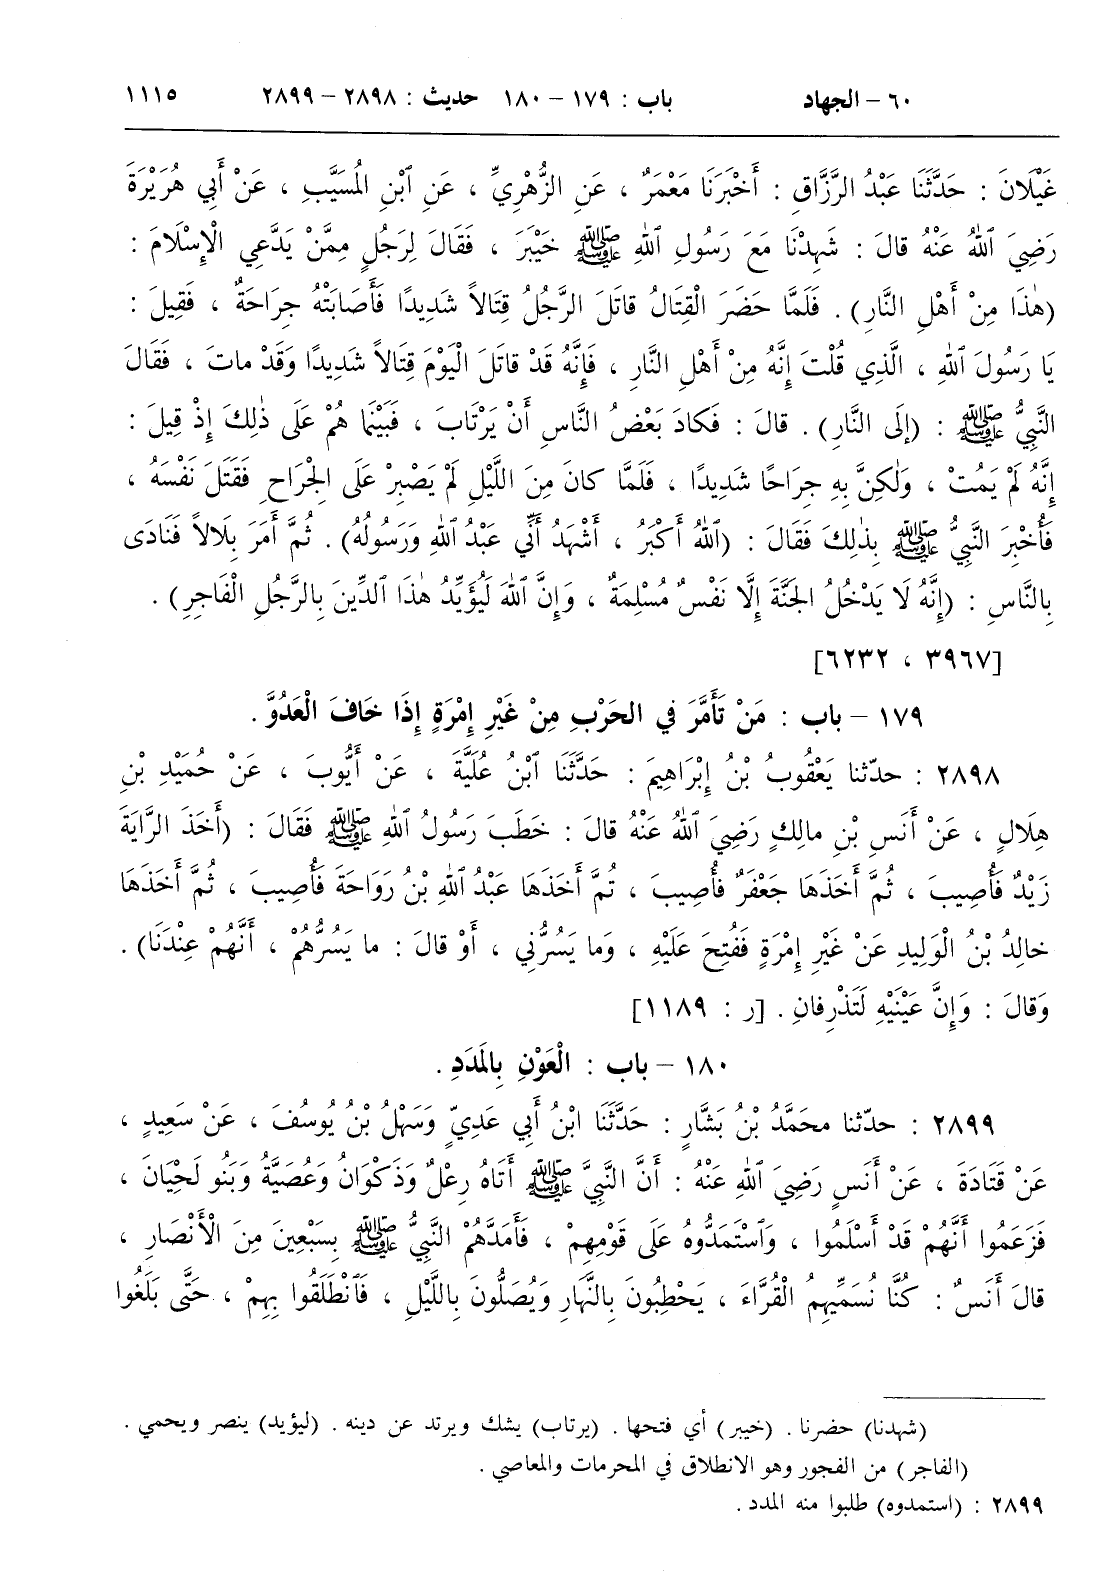 ٦٠ – الجهاد باب : ١٧٩ – ١٨٠ حديث : ٢٨٩٨ – ٢٨٩٩ ١١١٥
غَيْلَانَ : حَدَّثَنَا عَبْدُ الرَّزَّاقِ : أَخْبَرَنَا مَعْمَرٌ ، عَنِ الزُّهْرِيِّ ، عَنِ ٱبْنِ الْمُسَيَّبِ ، عَنْ أَبِي هُرَيْرَةَ
رَضِيَ ٱللهُ عَنْهُ قالَ : شَهِدْنَا مَعَ رَسُولِ ٱللهِ ﷺ خَيْبَرَ ، فَقَالَ لِرَجُلٍ مِمَّنْ يَدَّعِي الْإِسْلَامَ :
(هٰذَا مِنْ أَهْلِ النَّارِ) . فَلَمَّا حَضَرَ الْقِتَالُ قاتَلَ الرَّجُلُ قِتَالاً شَدِيدًا فَأَصَابَتْهُ جِرَاحَةٌ ، فَقِيلَ :
يَا رَسُولَ ٱللهِ ، الَّذِي قُلْتَ إِنَّهُ مِنْ أَهْلِ النَّارِ ، فَإِنَّهُ قَدْ قاتَلَ الْيَوْمَ قِتَالاً شَدِيدًا وَقَدْ ماتَ ، فَقَالَ
النَّبِيُّ ﷺ : (إِلَى النَّارِ) . قالَ : فَكادَ بَعْضُ النَّاسِ أَنْ يَرْتَابَ ، فَبَيْنَما هُمْ عَلَى ذٰلِكَ إِذْ قِيلَ :
إِنَّهُ لَمْ يَمُتْ ، وَلٰكِنَّ بِهِ جِرَاحًا شَدِيدًا ، فَلَمَّا كانَ مِنَ اللَّيْلِ لَمْ يَصْبِرْ عَلَى الْجِرَاحِ فَقَتَلَ نَفْسَهُ ،
فَأُخْبِرَ النَّبِيُّ ﷺ بِذٰلِكَ فَقَالَ : (ٱللهُ أَكْبَرُ ، أَشْهَدُ أَنِّي عَبْدُ ٱللهِ وَرَسُولُهُ) . ثُمَّ أَمَرَ بِلَالاً فَنَادَى
بِالنَّاسِ : (إِنَّهُ لَا يَدْخُلُ الْجَنَّةَ إِلَّا نَفْسٌ مُسْلِمَةٌ ، وَإِنَّ ٱللهَ لَيُؤَيِّدُ هٰذَا ٱلدِّينَ بِالرَّجُلِ الْفَاجِرِ) .
[٣٩٦٧ ، ٦٢٣٢]
١٧٩ – باب : مَنْ تَأَمَّرَ في الحَرْبِ مِنْ غَيْرِ إِمْرَةٍ إِذَا خافَ الْعَدُوَّ .
٢٨٩٨ : حدّثنا يَعْقُوبُ بْنُ إِبْرَاهِيمَ : حَدَّثَنَا ٱبْنُ عُلَيَّةَ ، عَنْ أَيُّوبَ ، عَنْ حُمَيْدِ بْنِ
هِلَالٍ ، عَنْ أَنَسِ بْنِ مالِكٍ رَضِيَ ٱللهُ عَنْهُ قالَ : خَطَبَ رَسُولُ ٱللهِ ﷺ فَقَالَ : (أَخَذَ الرَّايَةَ
زَيْدٌ فَأُصِيبَ ، ثُمَّ أَخَذَهَا جَعْفَرٌ فَأُصِيبَ ، ثُمَّ أَخَذَهَا عَبْدُ ٱللهِ بْنُ رَوَاحَةَ فَأُصِيبَ ، ثُمَّ أَخَذَهَا
خالِدُ بْنُ الْوَلِيدِ عَنْ غَيْرِ إِمْرَةٍ فَفُتِحَ عَلَيْهِ ، وَما يَسُرُّنِي ، أَوْ قالَ : ما يَسُرُّهُمْ ، أَنَّهُمْ عِنْدَنَا) .
وَقالَ : وَإِنَّ عَيْنَيْهِ لَتَذْرِفانِ . [ر : ١١٨٩]
١٨٠ – باب : الْعَوْنِ بِالمَدَدِ .
٢٨٩٩ : حدّثنا محَمَّدُ بْنُ بَشَّارٍ : حَدَّثَنَا ابْنُ أَبِي عَدِيٍّ وَسَهْلُ بْنُ يُوسُفَ ، عَنْ سَعِيدٍ ،
عَنْ قَتَادَةَ ، عَنْ أَنَسٍ رَضِيَ ٱللهِ عَنْهُ : أَنَّ النَّبِيَّ ﷺ أَتَاهُ رِعْلٌ وَذَكْوَانُ وَعُصَيَّةُ وَبَنُو لَحْيَانَ ،
فَزَعَمُوا أَنَّهُمْ قَدْ أَسْلَمُوا ، وَٱسْتَمَدُّوهُ عَلَى قَوْمِهِمْ ، فَأَمَدَّهُمُ النَّبِيُّ ﷺ بِسَبْعِينَ مِنَ الْأَنْصَارِ ،
قالَ أَنَسٌ : كُنَّا نُسَمِّيهِمُ الْقُرَّاءَ ، يَحْطِبُونَ بِالنَّهَارِ وَيُصَلُّونَ بِاللَّيْلِ ، فَٱنْطَلَقُوا بِهِمْ ، حَتَّى بَلَغُوا
(شهدنا) حضرنا . (خيبر) أي فتحها . (يرتاب) يشك ويرتد عن دينه . (ليؤيد) ينصر ويحمي .
(الفاجر) من الفجور وهو الانطلاق في المحرمات والمعاصي .
٢٨٩٩ : (استمدوه) طلبوا منه المدد .